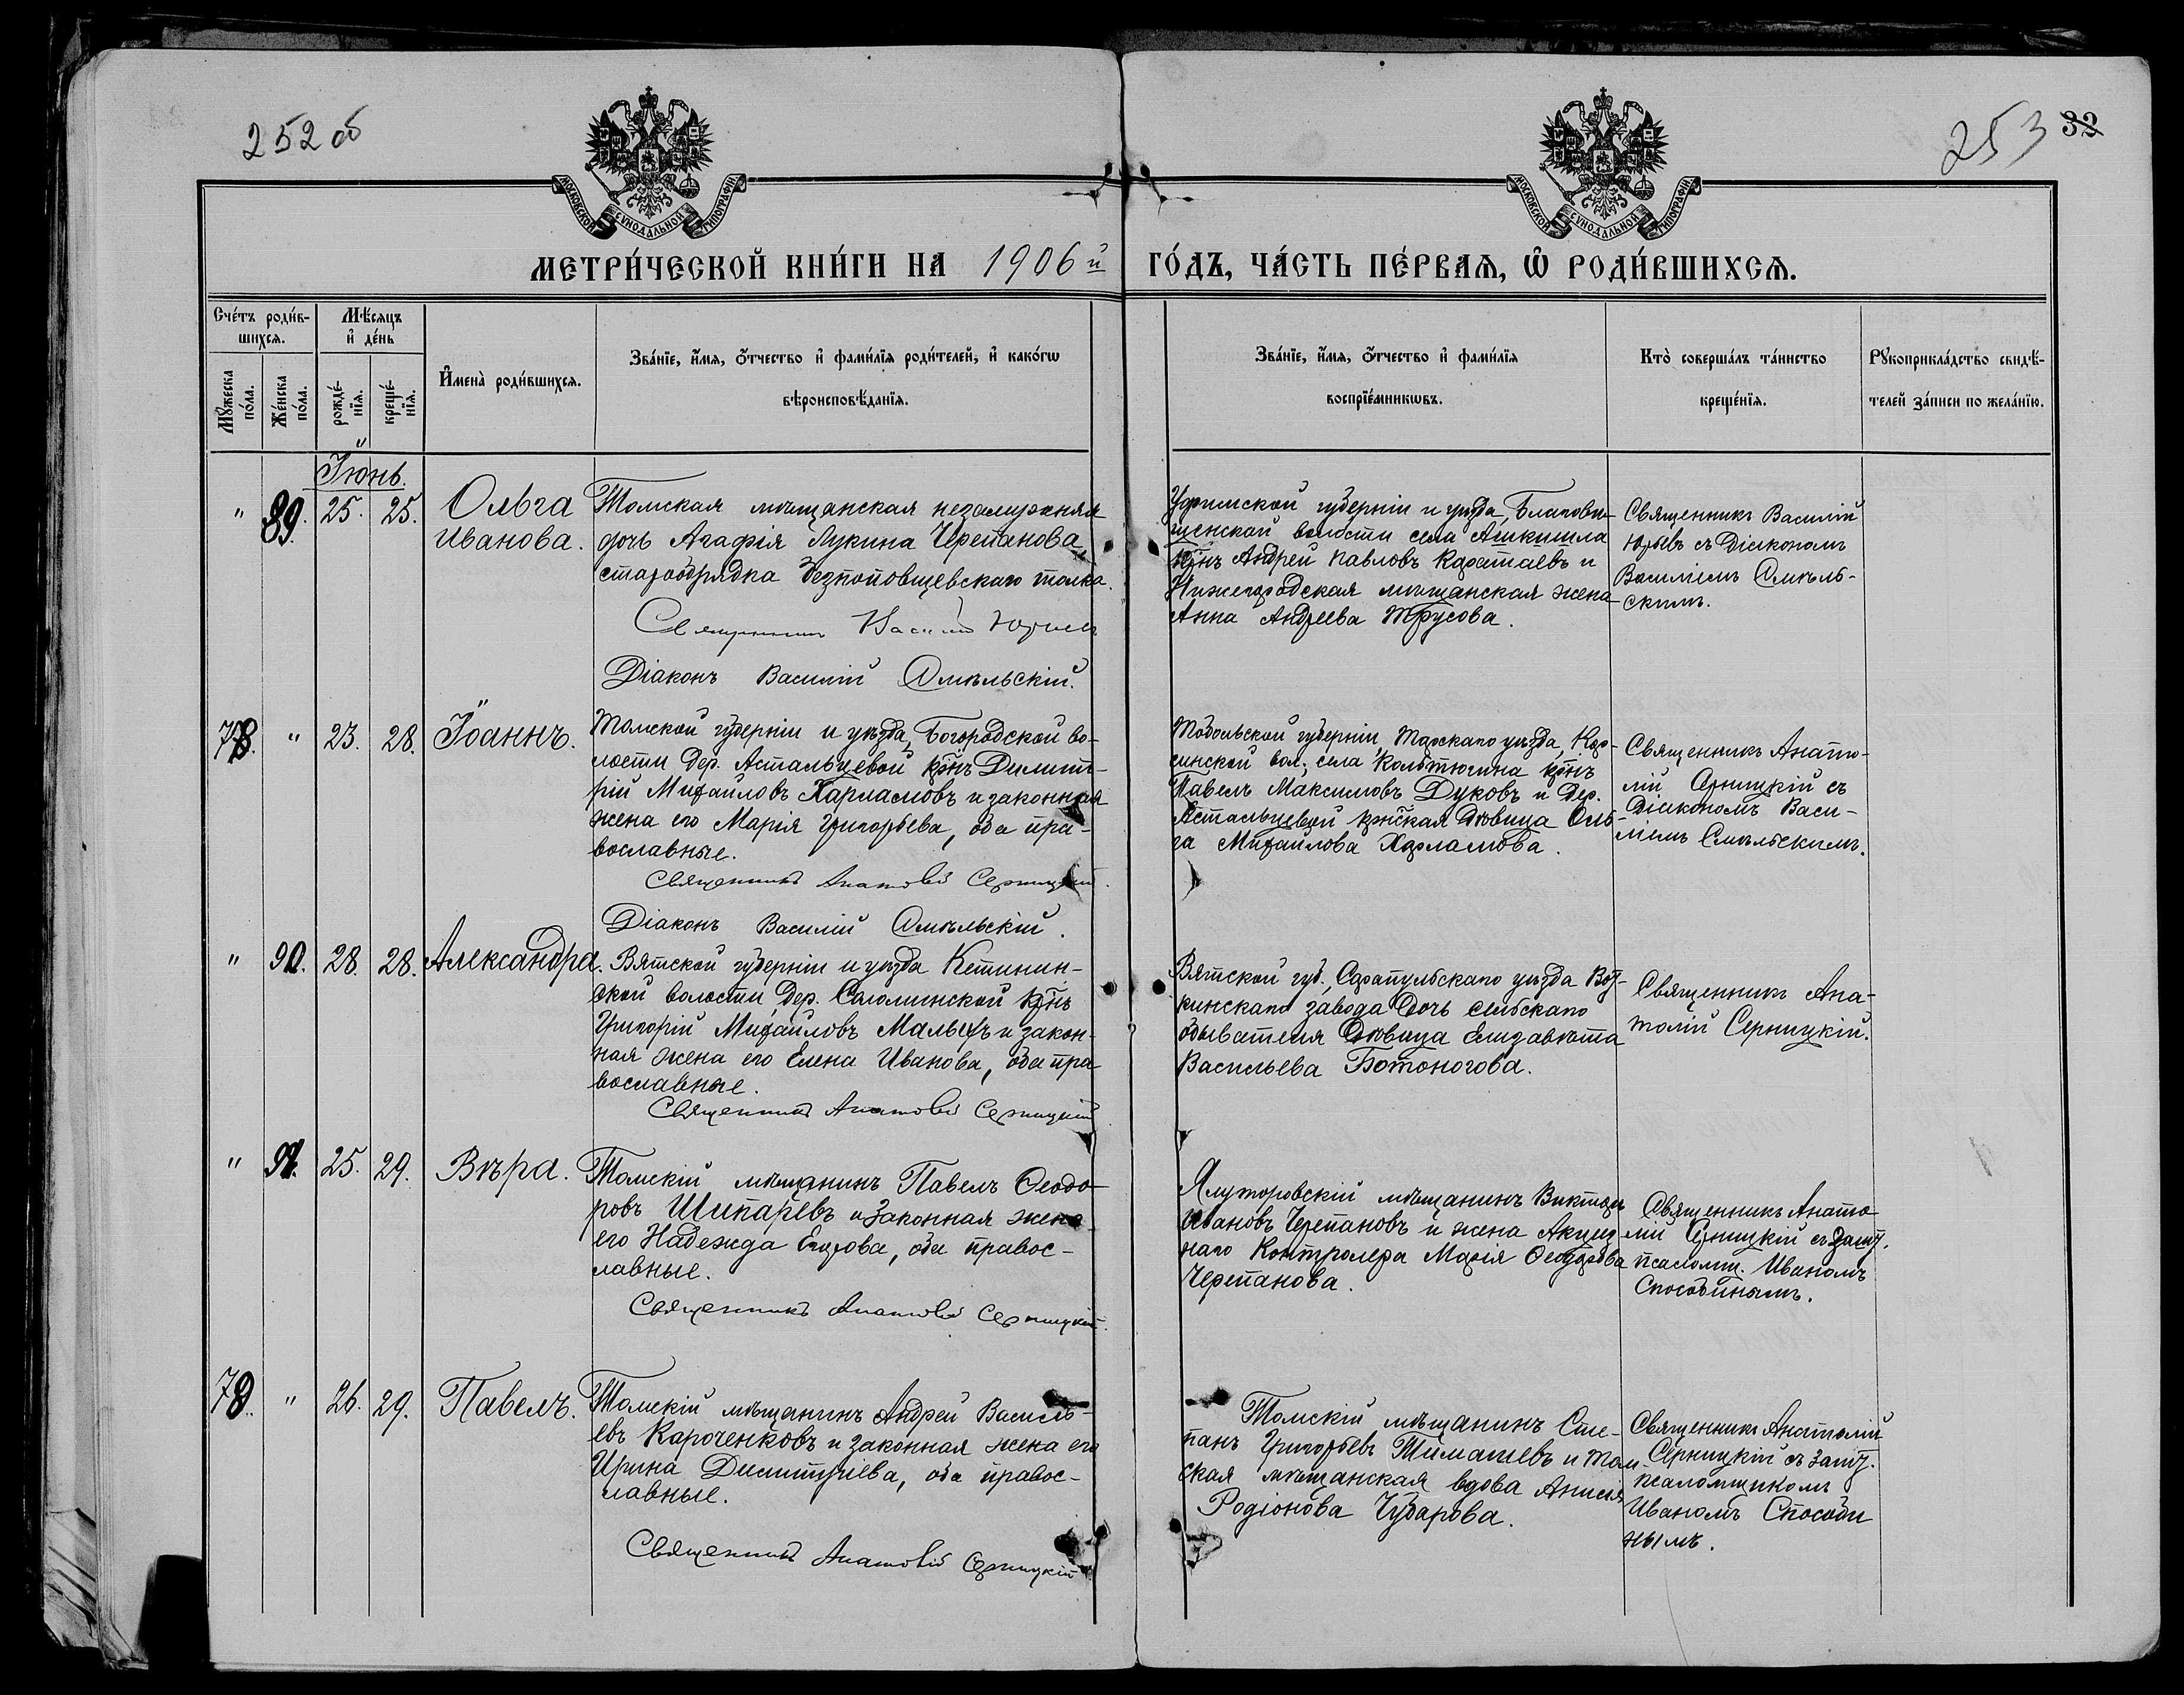 252 об
253 32
МОСКОВСКОЙ СѴНОДАЛЬНОЙ ТИПОГРАФІИ
МОСКОВСКОЙ СѴНОДАЛЬНОЙ ТИПОГРАФІИ
МЕТРИ́ЧЕСКОЙ КНИ́ГИ НА 1906й ГО́ДЪ, ЧА́СТЬ ПЕ́РВАѦ, Ѡ҆ РОДИ́ВШИХСѦ.
Сче́тъ роди́в-
шихсѧ.
Мꙋ́жеска по́ла.
Же́нска по́ла.
Мѣ́сѧцъ
и҆ де́нь
рожде́-
нїѧ.
креще́-
нїѧ.
И҆мена̀ роди́вшихсѧ.
Зва́нїе, и҆́мѧ, ѻ҆́тчество и҆ фами́лїѧ роди́телей, и҆ како́гѡ
вѣроисповѣ́данїѧ.
Зва́нїе, и҆́мѧ, ѻ҆́тчество и҆ фами́лїѧ
воспрїе́мникѡвъ.
Кто̀ соверша́лъ та́инство
креще́нїѧ.
Рꙋкоприкла́дство свидѣ́-
телей за́писи по жела́нїю.
Іюнь.
" 89. 25. 25. Ольга
Иванова.
Томская мѣщанская незамужняя
дочь Агафія Лукина Черепанова
старообрядка безпоповщевскаго толка.
Священникъ Василій Юрьевъ
Діаконъ Василій Смѣльскій.
Уфимской губерніи и уѣзда, Благовѣ-
щенской волости села Ашкашла
крнъ Андрей Павловъ Каратаевъ и
Нижегородская мѣщанская жена
Анна Андреева Трусова.
Священникъ Василій
Юрьевъ съ Діакономъ
Василіемъ Смѣль-
скимъ.
78. " 23. 28. Іоаннъ.
Томской губерніи и уѣзда, Богородской во-
лости дер. Астальцевой крнъ Димит-
рій Михайловъ Харламовъ и законная
жена его Марія Григорьева, оба пра-
вославные.
Священникъ Анатолій Серницкій.
Діаконъ Василій Смѣльскій.
Тобольской губерніи, Тарскаго уѣзда, Кар-
синской вол., села Колтюгина крнъ
Павелъ Максимовъ Дуковъ и дер.
Астальцевой крнская дѣвица Оль-
га Михайлова Харламова.
Священникъ Анато-
лій Серницкій съ
Діакономъ Васи-
ліемъ Смѣльскимъ.
" 90. 28. 28. Александра.
Вятской губерніи и уѣзда Кстинин-
ской волости, дер. Соломинской крнъ
Григорій Михайловъ Мальцевъ и закон-
ная жена его Елена Иванова, оба пра-
вославные.
Священникъ Анатолій Серницкій
Вятской губ., Сарапульскаго уѣзда Вот-
кинскаго завода дочь сельскаго
обывателя дѣвица Елизавѣта
Васильева Ботоногова.
Священникъ Ана-
толій Серницкій.
" 91. 25. 29. Вѣра.
Томскій мѣщанинъ Павелъ Ѳеодо-
ровъ Шипаревъ и законная жена
его Надежда Егорова, оба правос-
лавные.
Священникъ Анатолій Серницкій.
Ялуторовскій мѣщанинъ Викторъ
Ивановъ Черепановъ и жена Акциз-
наго Контролера Марія Ѳеодорова
Черепанова.
Священникъ Анато-
лій Серницкій съ зашт.
псаломщ. Иваномъ
Способинымъ.
79. " 26. 29. Павелъ.
Томскій мѣщанинъ Андрей Василь-
евъ Кароченковъ и законная жена его
Ирина Димитріева, оба правос-
лавные.
Священникъ Анатолій Серницкій
Томскій мѣщанинъ Сте-
панъ Григорьевъ Тимашевъ и Том-
ская мѣщанская вдова Анисія
Родіонова Чубарова.
Священникъ Анатолій
Серницкій съ зашт.
псаломщикомъ
Иваномъ Способи
нымъ.